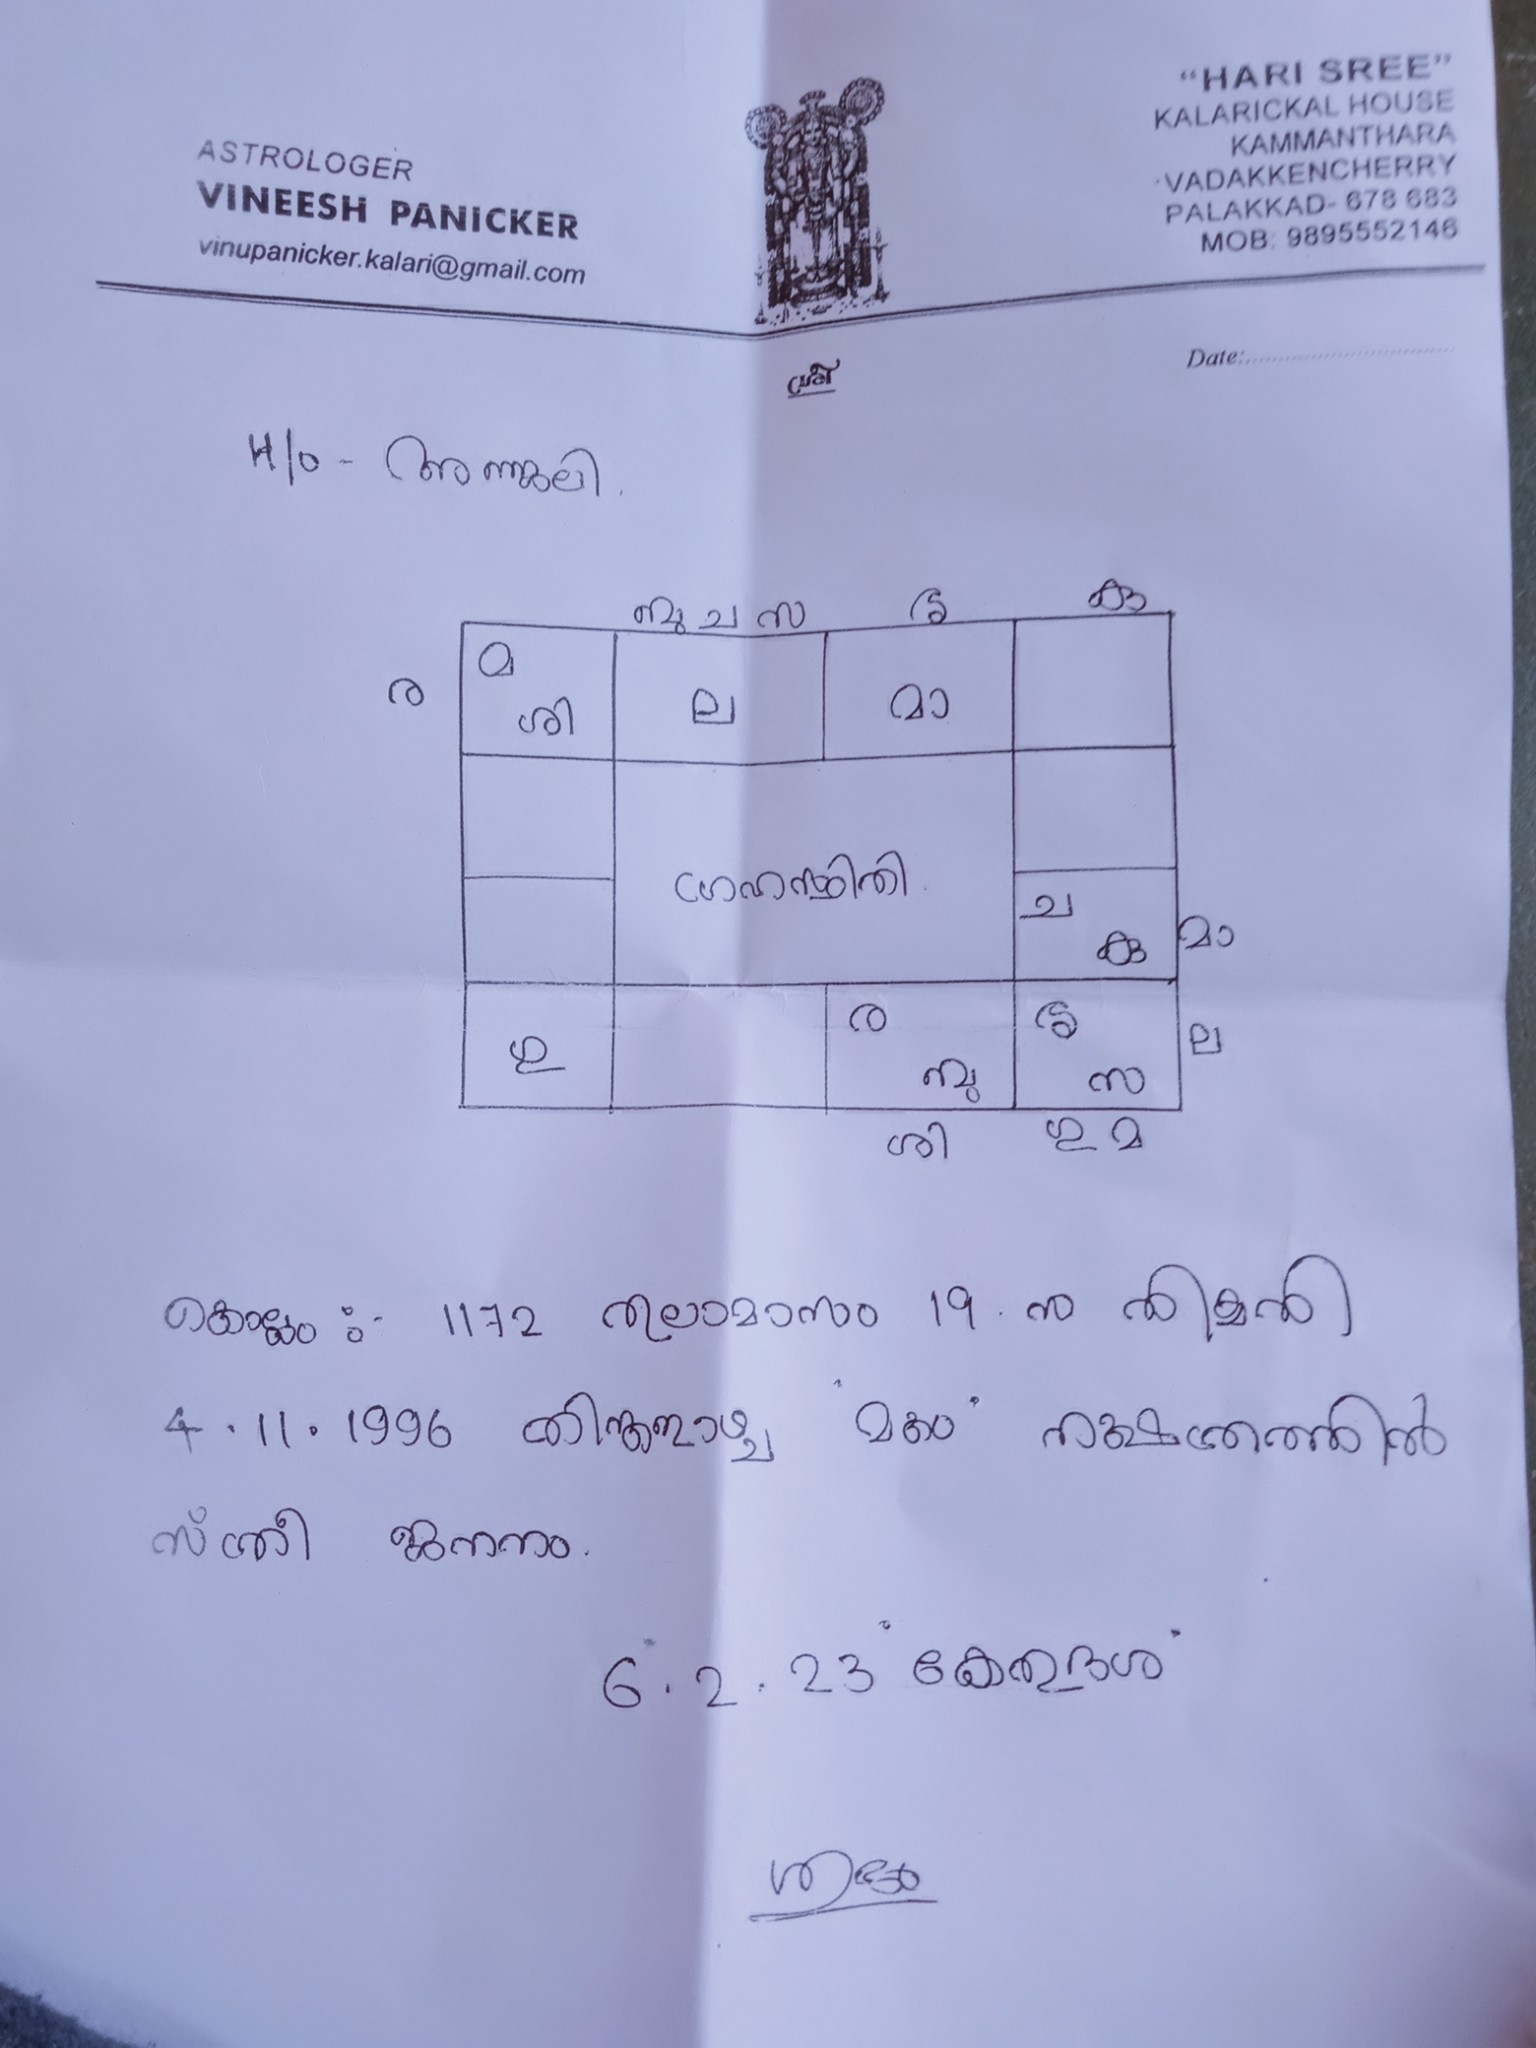 ASTROLOGER
VINEESH PANICKER
vinupanicker.kalari@gmail.com
"HARI SREE"
KALARICKAL HOUSE
KAMMANTHARA
VADAKKENCHERRY
PALAKKAD- 678 683
MOB: 9895552146
Date:
ശ്രീ
H/o - അഞ്ജലി.
ബു ച സ ഭൃ കു
ര മ ശി ല മാ
ഗ്രഹസ്ഥിതി
ച കു മാ
ഗു ര ബു ഭൃ സ ല
ശി ഗു മ
കൊല്ലം :- 1172 തുലാമാസം 19 നു
4.11.1996 തിങ്കളാഴ്ച 'മകം' നക്ഷത്രത്തിൽ
സ്ത്രീ ജനനം.
6.2.23 കേതുദശ
ശുഭം